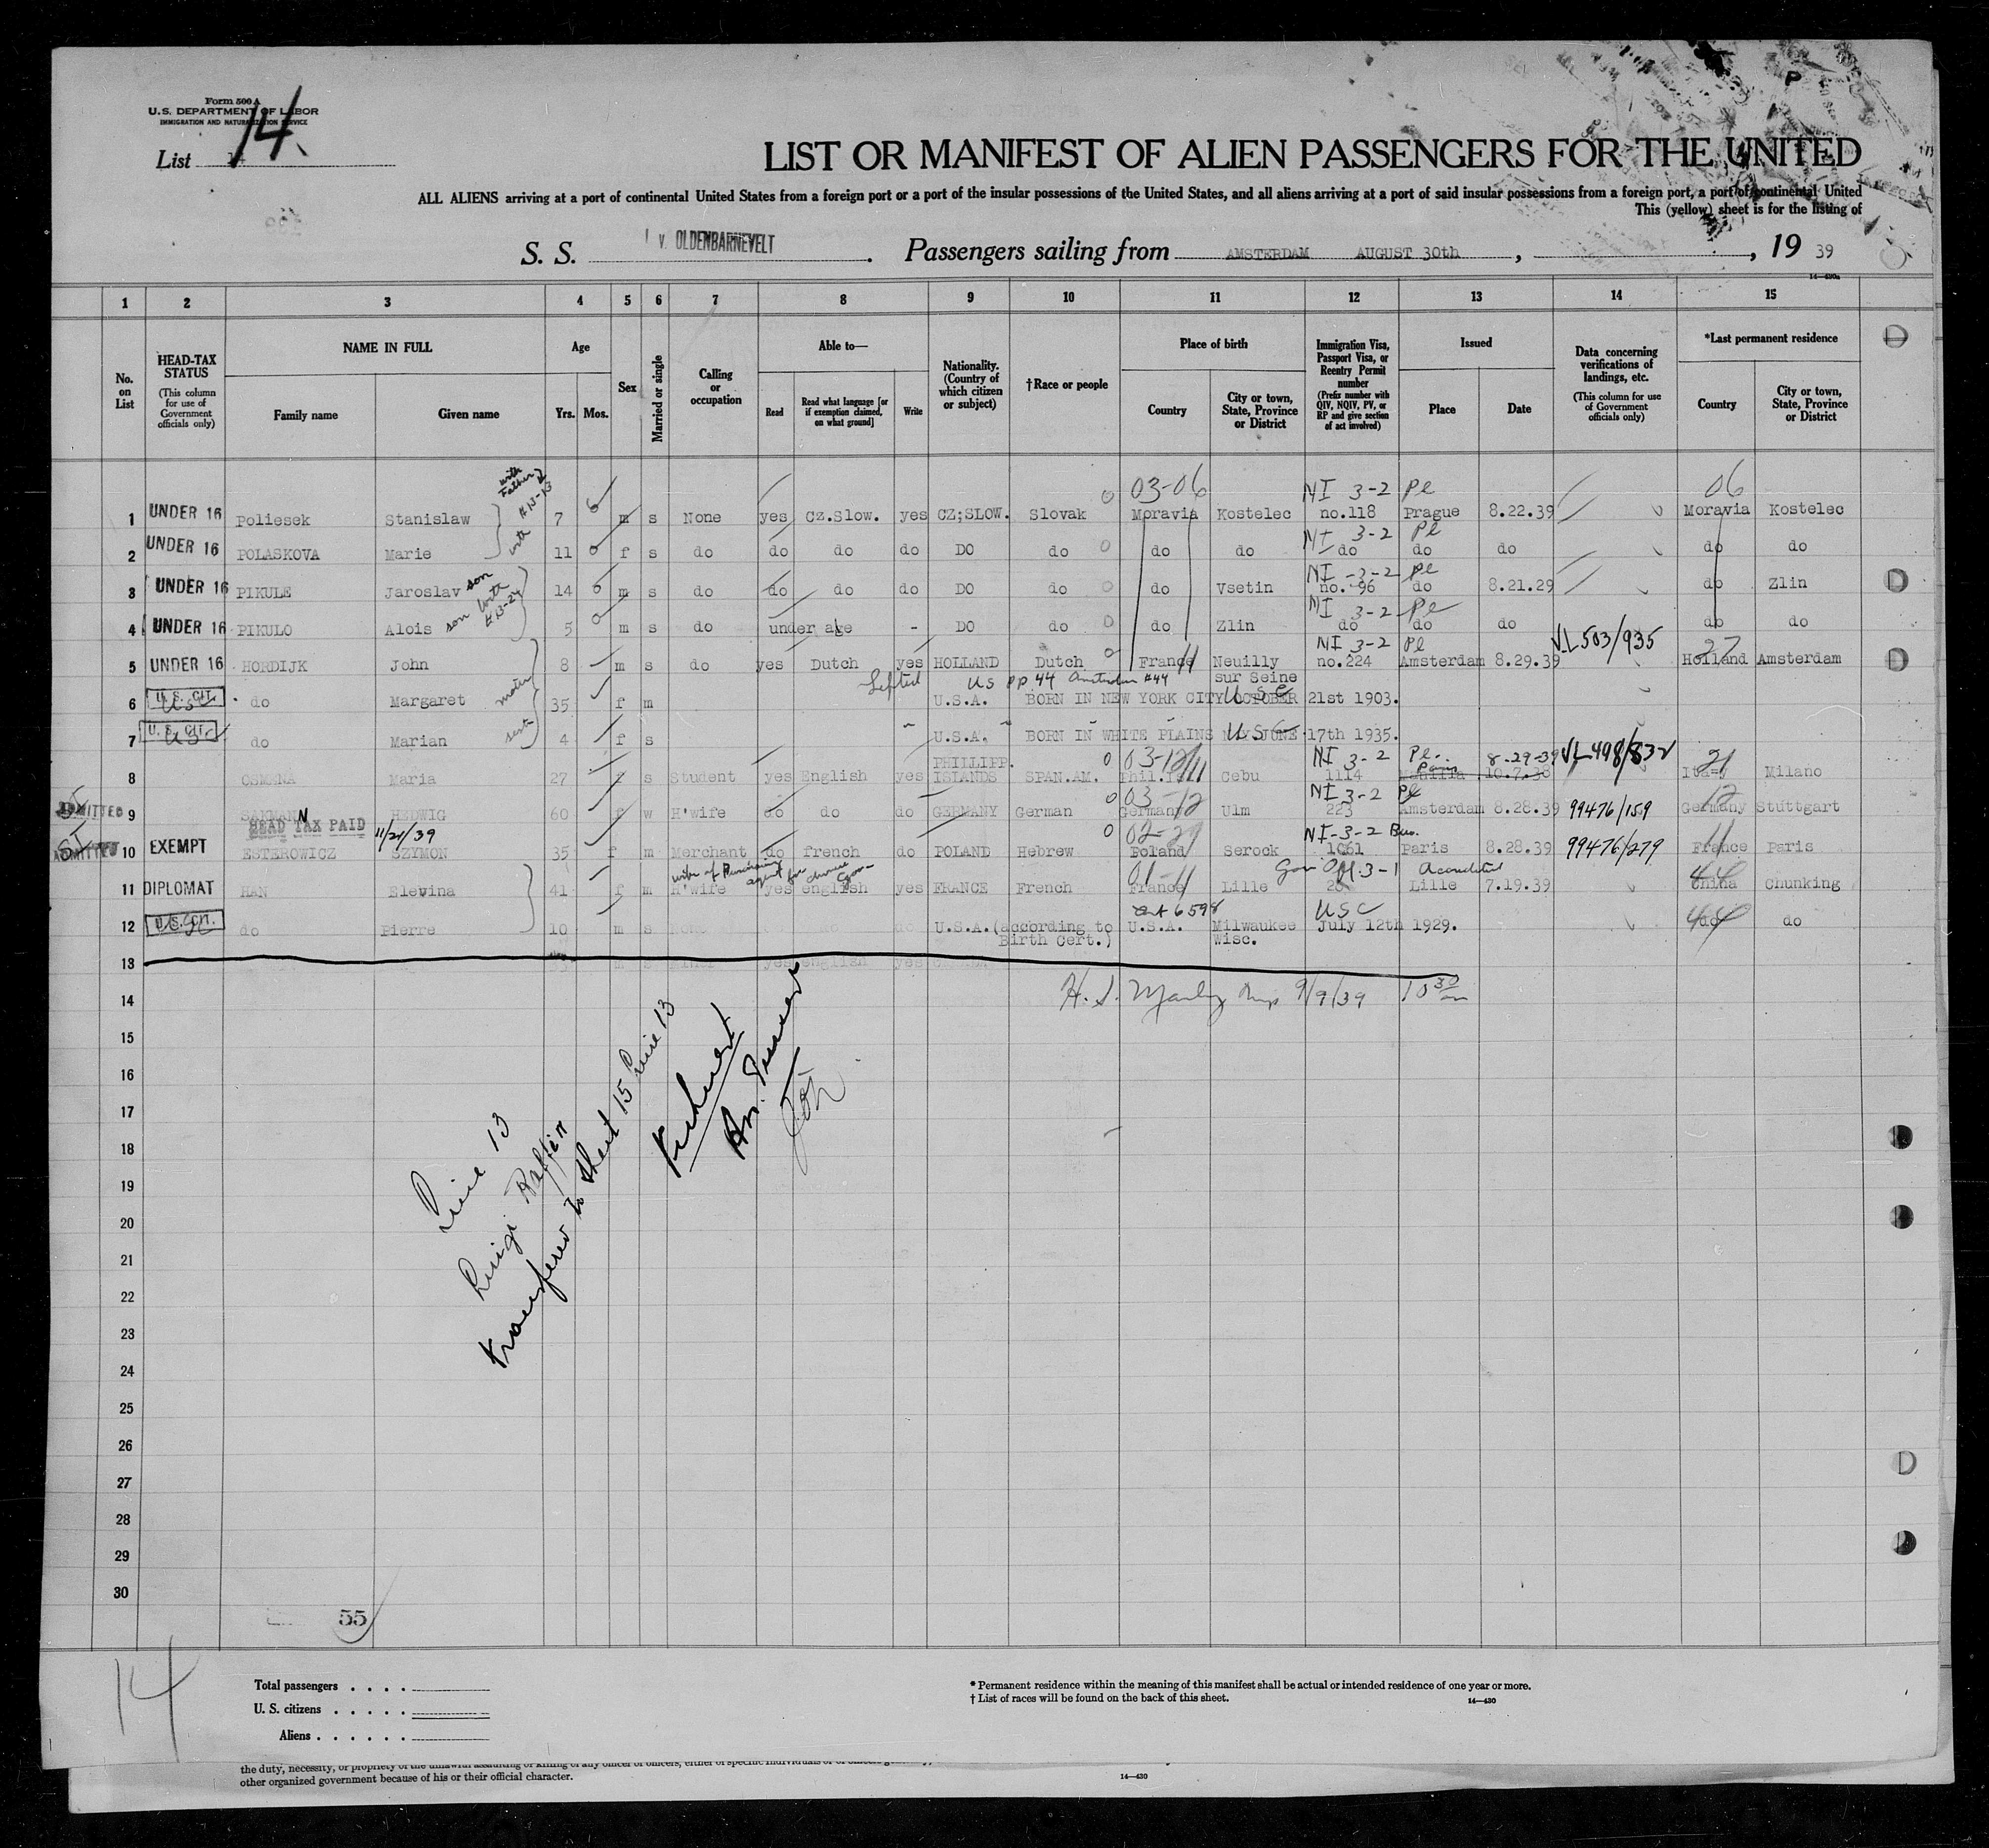 Form 500 A
U.S. DEPARTMENT OF LABOR
IMMIGRATION AND NATURALIZATION SERVICE
List 14
LIST OR MANIFEST OF ALIEN PASSENGERS FOR THE UNITED
ALL ALIENS arriving at a port of continental United States from a foreign port or a port of the insular possessions of the United States, and all aliens arriving at a port of said insular possessions from a foreign port, a port of continental United
This (yellow) sheet is for the listing of
S. S. v. OLDENBARNEVELT. Passengers sailing from AMSTERDAM AUGUST 30th, , 19 39
14—430a
1 2 3 4 5 6 7 8 9 10 11 12 13 14 15
No. on List
HEAD-TAX STATUS (This column for use of Government officials only)
NAME IN FULL Family name Given name
Age Yrs. Mos.
Sex
Married or single
Calling or occupation
Able to— Read Read what language [or if exemption claimed, on what ground] Write
Nationality. (Country of which citizen or subject)
†Race or people
Place of birth Country City or town, State, Province or District
Immigration Visa, Passport Visa, or Reentry Permit number (Prefix number with QIV, NQIV, PV, or RP and give section of act involved)
Issued Place Date
Data concerning verifications of landings, etc. (This column for use of Government officials only)
*Last permanent residence Country City or town, State, Province or District
with Father # 13-13
03-06 NI 3-2 Pl 06
1 UNDER 16 Poliesek Stanislaw 7 m s None yes Cz.Slow. yes CZ;SLOW. Slovak Moravia Kostelec no.118 Prague 8.22.39 Moravia Kostelec
NI 3-2 Pl
2 UNDER 16 POLASKOVA Marie 11 f s do do do do DO do do do do do do do do
NI -3-2 Pl
3 UNDER 16 PIKULE Jaroslav son 14 m s do do do do DO do do Vsetin no. 96 do 8.21.29 do Zlin
with #13-24
NI 3-2 Pl
4 UNDER 16 PIKULO Alois son 5 m s do under age - DO do do Zlin do do do do do
NI 3-2 Pl VL503/935 27
5 UNDER 16 HORDIJK John 8 m s do yes Dutch yes HOLLAND Dutch France 11 Neuilly sur Seine no.224 Amsterdam 8.29.39 Holland Amsterdam
Lifted US PP 44 Amsterdam #44
6 U.S. CIT. USC do Margaret mother 35 f m U.S.A. BORN IN NEW YORK CITY OCTOBER 21st 1903. USC
7 U.S. CIT. USC do Marian sister 4 f s U.S.A. BORN IN WHITE PLAINS JUNE 17th 1935. USC
03-12/11 NI 3-2 Pl. Paris 8-29-39 VL-498/832 21
8 OSMENA Maria 27 f s Student yes English yes PHILLIPP. ISLANDS SPAN.AM. Phil.I. Cebu 1114 Manilla 10.7.38 Italy Milano
03-12 NI 3-2 Pl 12
ADMITTED 9 HEDWIG 60 f w H'wife do do do GERMANY German Germany Ulm 223 Amsterdam 8.28.39 99476/159 Germany Stuttgart
HEAD TAX PAID 11/24/39
02-29 NI-3-2 Bus. 11
ADMITTED 10 EXEMPT ESTEROWICZ SZYMON 35 f m Merchant do french do POLAND Hebrew Poland Serock 1061 Paris 8.28.39 99476/279 France Paris
wife of Purchasing agent for Chinese Gov-
01-11 Gov Off. 3-1 Accredited 44
11 DIPLOMAT HAN Elevina 41 f m H'wife yes english yes FRANCE French France Lille 20 Lille 7.19.39 China Chunking
Cert 6598 USC 44
12 U.S. CIT. USC do Pierre 10 m s U.S.A.(according to Birth Cert.) U.S.A. Milwaukee Wisc. July 12th 1929. do do
13 yes english yes
14 H. S. Manley Insp 9/9/39 10 30 am
15
16
17
18
19
20
21
22
23
24
25
26
27
28
29
30
Line 13
Luigi Raffin
transferred to sheet 15 Line 13
55
14
Total passengers
U. S. citizens
Aliens
* Permanent residence within the meaning of this manifest shall be actual or intended residence of one year or more.
† List of races will be found on the back of this sheet. 14—430
the duty, necessity, or propriety of the unlawful assaulting or killing of any officer or officers, either of specific individuals or of officers
other organized government because of his or their official character. 14—430